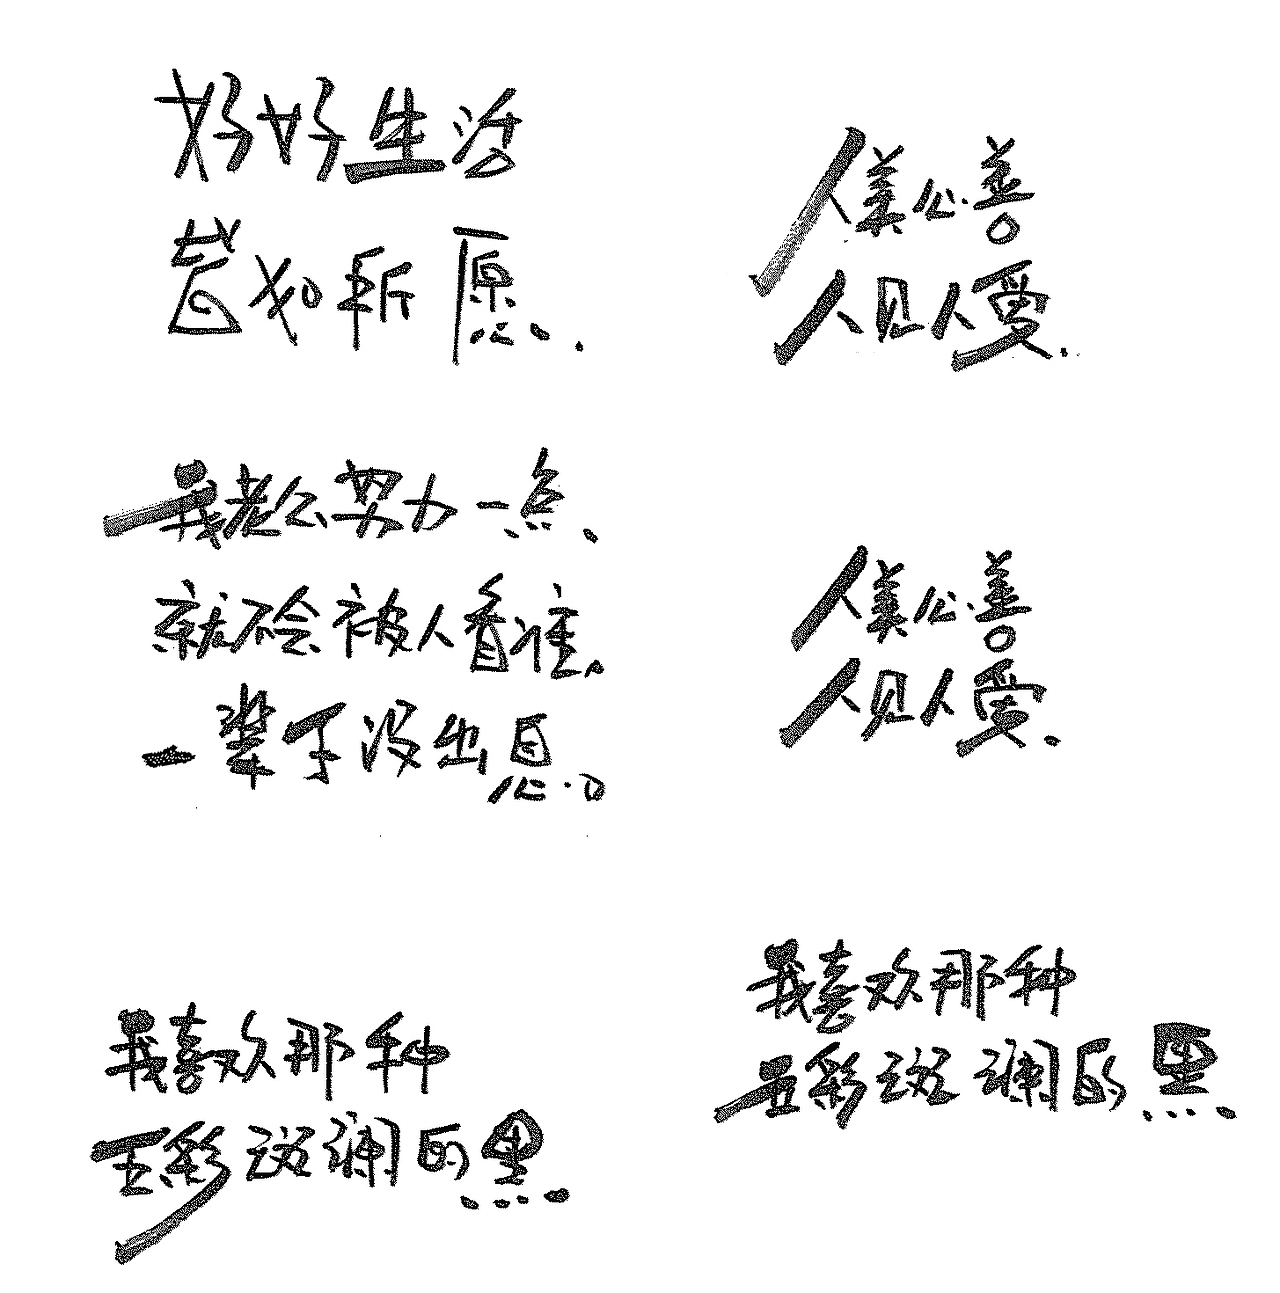 好好生活
皆如所愿.
人美心善
人见人爱.
我老公努力一点、
就不会被人看准、
一辈子没出息。
人美心善
人见人爱.
我喜欢那种
五彩斑斓的黑
我喜欢那种
五彩斑斓的黑